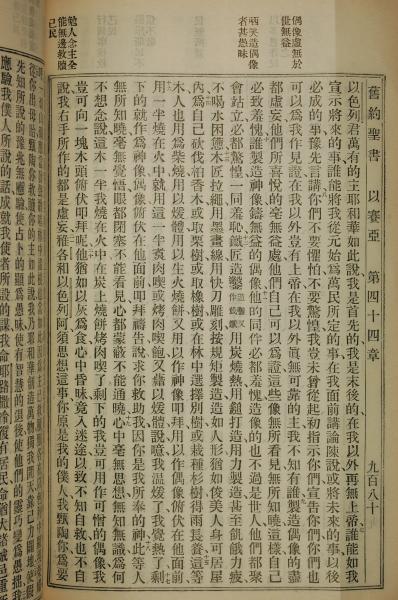 舊約聖書 以賽亞 第四十四章 九百八十
以色列君萬有的主耶和華如此說我是首先的我是末後的在我以外再無上帝誰能如我
宣示將來的事誰能將我從元始為萬民所定的事在我面前講論陳說或將未來的事以後
必成的事豫先言講你們不要懼怕不要驚惶我豈未嘗從起初指示你們宣告你們你們也
都為我作見證在我以外豈有上帝在我以外眞無可靠的主我不知有誰製造偶像的盡
都虛妄他們所喜悅的毫無益處他們自己可以為證這些像無所看見無所知曉這樣自己
必致羞愧誰製造神像鑄無益的偶像他的同伴必都羞愧造像的也不過是世人他們都聚
會站立必都驚惶一同羞恥鐵匠造
用炭燒熱用鎚打造用力製造甚至飢餓力疲
不喝水困憊木匠拉繩用墨畫線用快刀彫刻按規矩製造造如人形猶如俊美人身可居屋
內為自己砍伐柏香木或取栗樹或取橡樹或在林中選擇別樹或栽種杉樹得雨長養這等
木人也用為柴燒用以煖體用以生火燒餅又用以作神像叩拜用以作偶像俯伏在他面前
用一半燒在火中就用這一半煮肉喫或烤肉喫飽又藉以煖體說噫我温煖了我覺熱了剩
下的就作為神像偶像俯伏在他面前叩拜禱告說求你救助我因你是我所奉的神此等人
無所知曉毫無覺悟眼都閉塞不能看見心都蒙蔽不能通曉心中毫無思想無知無識為何
不想念說這木一半我燒在火中在炭上燒餅烤肉喫了剩下的我豈可用作可憎的偶像我
豈可向一塊木頭俯伏叩拜呢他猶如以灰為食心中昏昧竟入迷途以致不知自救也不自
說我右手所作的都是虛妄雅各和以色列阿須思想這事你原是我的僕人我甄陶你為要
偶像虛無於
世無益
製造偶像
者甚愚昧
勉人念主全
能無邊救贖
己民
應驗我僕人所說的話成就我使者所設的謀我命耶路撒冷復有居民命猶大諸城重